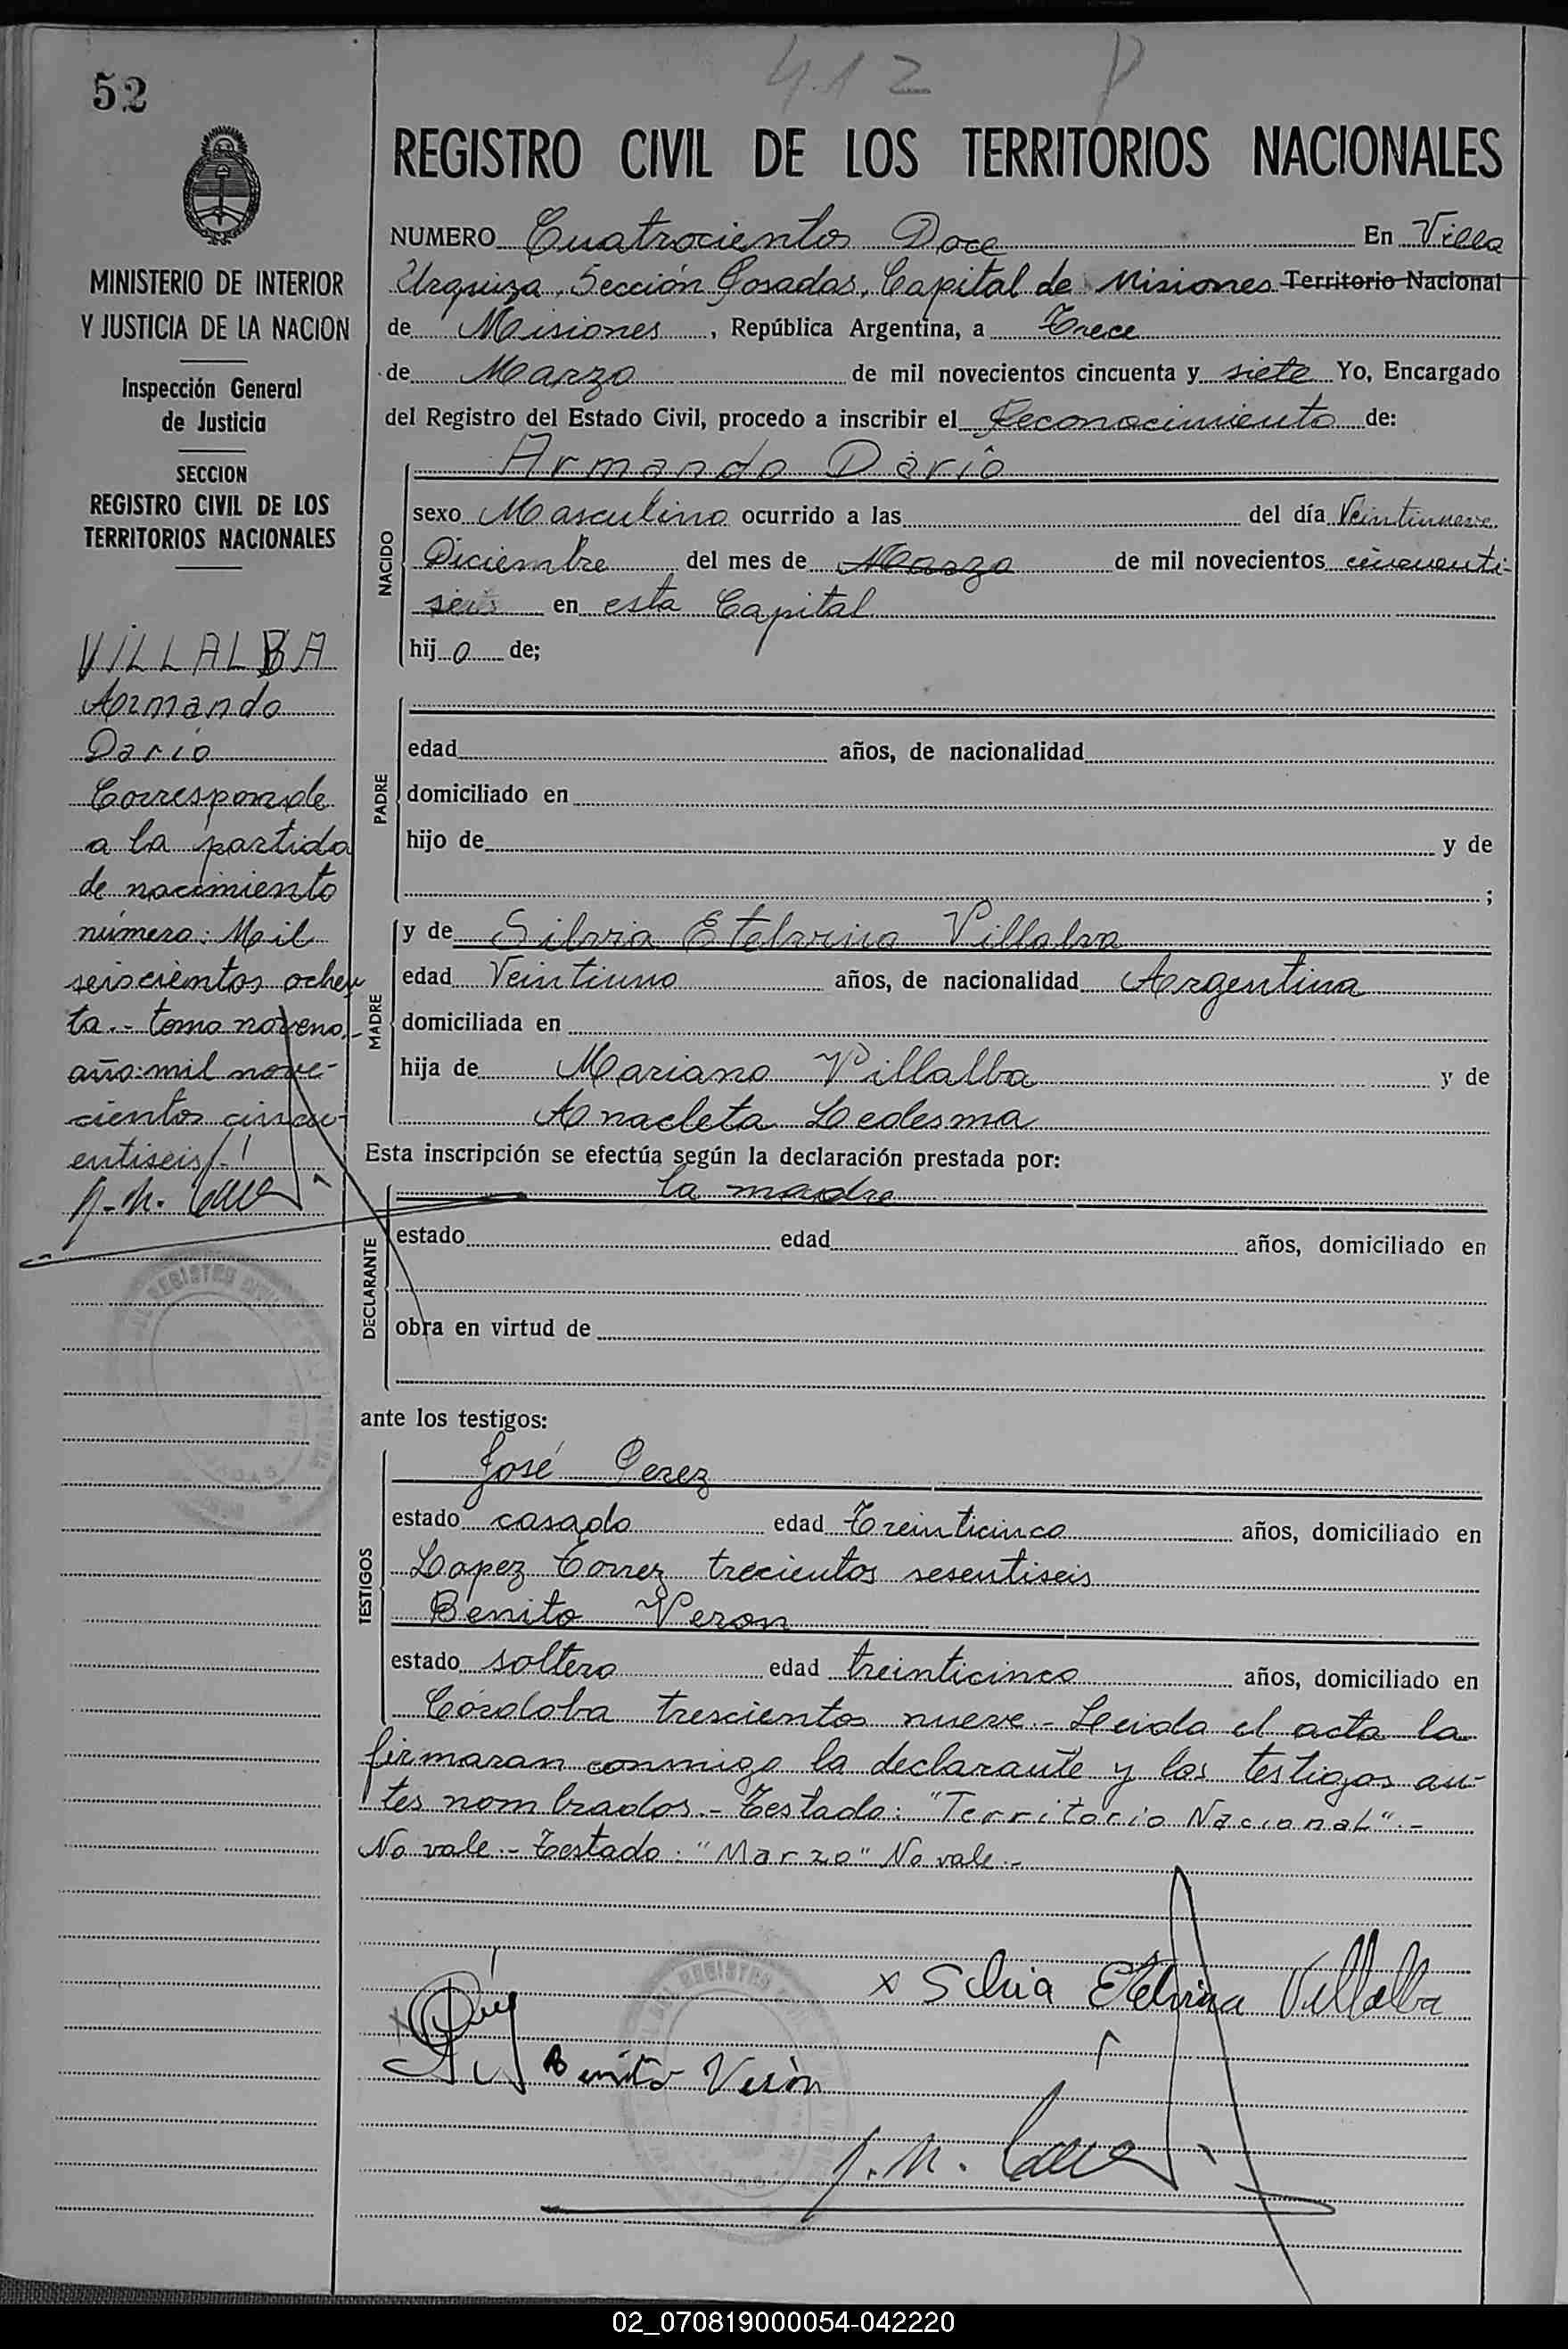 52
412
REGISTRO CIVIL DE LOS TERRITORIOS NACIONALES
MINISTERIO DE INTERIOR
Y JUSTICIA DE LA NACION
Inspección General
de Justicia
SECCION
REGISTRO CIVIL DE LOS
TERRITORIOS NACIONALES
VILLALBA
Armando
Dario
Corresponde
a la partida
de nacimiento
número: Mil
seiscientos ochen
ta.- tomo noveno,-
año: mil nove-
cientos cincu-
entiseis/-!
NUMERO Cuatrocientos Doce En Villa
Urquiza, Sección Posadas, Capital de Misiones Territorio Nacional
de Misiones, República Argentina, a Trece
de Marzo de mil novecientos cincuenta y siete Yo, Encargado
del Registro del Estado Civil, procedo a inscribir el Reconocimiento de:
Armando Dario
NACIDO
sexo Masculino ocurrido a las del día Veintinueve
Diciembre del mes de Marzo de mil novecientos cincuenti-
seis en esta Capital
hijo de;
PADRE
edad años, de nacionalidad
domiciliado en
hijo de y de
;
MADRE
y de Silvia Etelvina Villalva
edad Veintiuno años, de nacionalidad Argentina
domiciliada en
hija de Mariano Villalba y de
Anacleta Ledesma
Esta inscripción se efectúa según la declaración prestada por:
la madre
DECLARANTE
estado edad años, domiciliado en
obra en virtud de
ante los testigos:
TESTIGOS
José Perez
estado casado edad Treinticinco años, domiciliado en
Lopez Torrez trecientos sesentiseis
Benito Veron
estado soltero edad treinticinco años, domiciliado en
Córdoba trescientos nueve.- Leida el acta la
firmaran conmigo la declarante y los testigos an-
tes nombrados.- Testado: "Territorio Nacional".-
No vale.- Testado: "Marzo" No vale.-
x Silvia Etelvina Villalba
Benito Verón
02_070819000054-042220